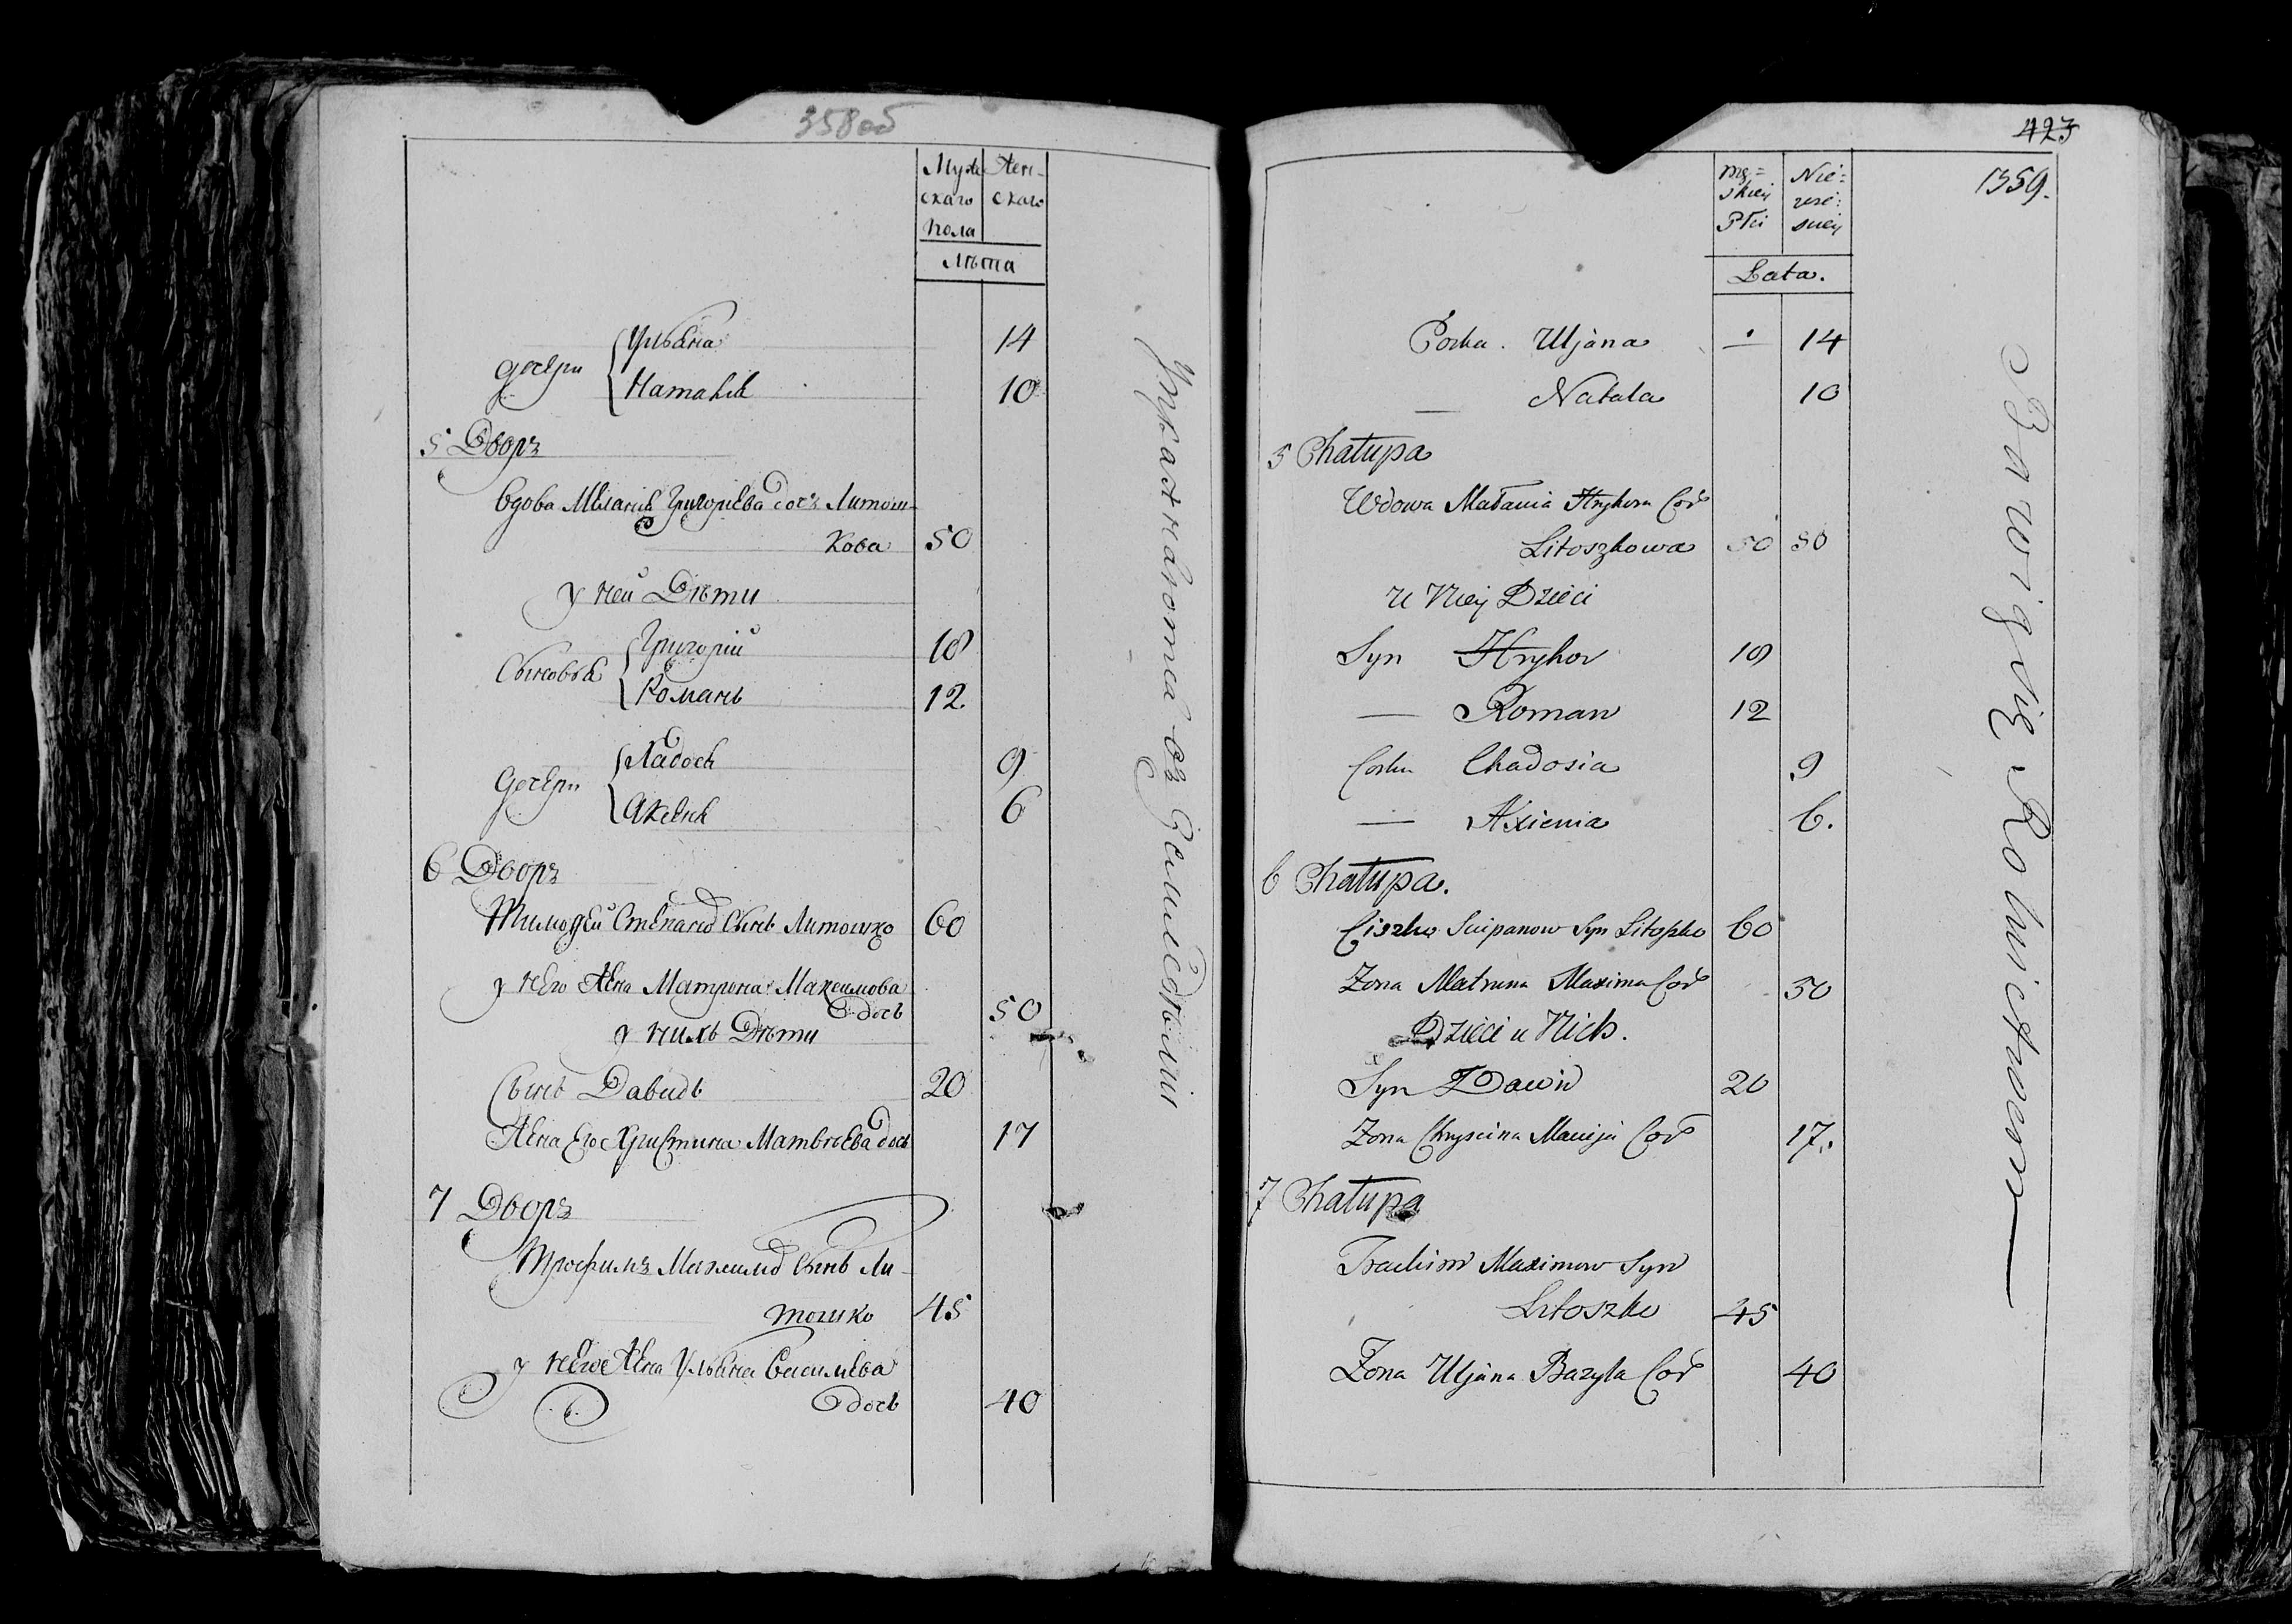 358об
Мужескаго пола
Женскаго
Лѣта
дочери
Ульяна 14
Наталья 10
5 Дворъ
вдова Меланья Григорьева дочь Литош-
кова 50
у неи Дѣти
Сыновья
Григорій 18
Романъ 12
дочери
Ѳадося 9
Аксенья 6
6 Дворъ
Тимоѳей Степановъ Сынъ Литошко 60
у него Жена Матрона Максимова
дочь 50
у нихъ Дѣти
Сынъ Давидъ 20
Жена его Христина Матвѣева дочь 17
7 Дворъ
Трофимъ Максимовъ Сынъ Ли-
тошко 45
у него Жена Ульяна Васильева
дочь 40
Упражняются въ Земледѣліи
423
1359.
Mę=
skiej
Płci
Nie=
wie:
sciej
Lata.
Corka. Uljana — 14
— Natala 10
5 Chałupa
Wdowa Małania Hryhora Cor
Litoszkowa 50 50
u Niej Dzieci
Syn Hryhor 18
— Roman 12
Corka Chadosia 9
— Axienia 6.
6 Chałupa.
Ciszko Sciepanow Syn Litoszko 60
Zona Matruna Maxima Cor 50
Dzieci u Nich.
Syn Dawid 20
Zona Chryscina Macieja Cor 17.
7 Chałupa
Trachim Maximow Syn
Litoszko 45
Zona Uljana Bazyla Cor 40
Bawią się Rolnictwem